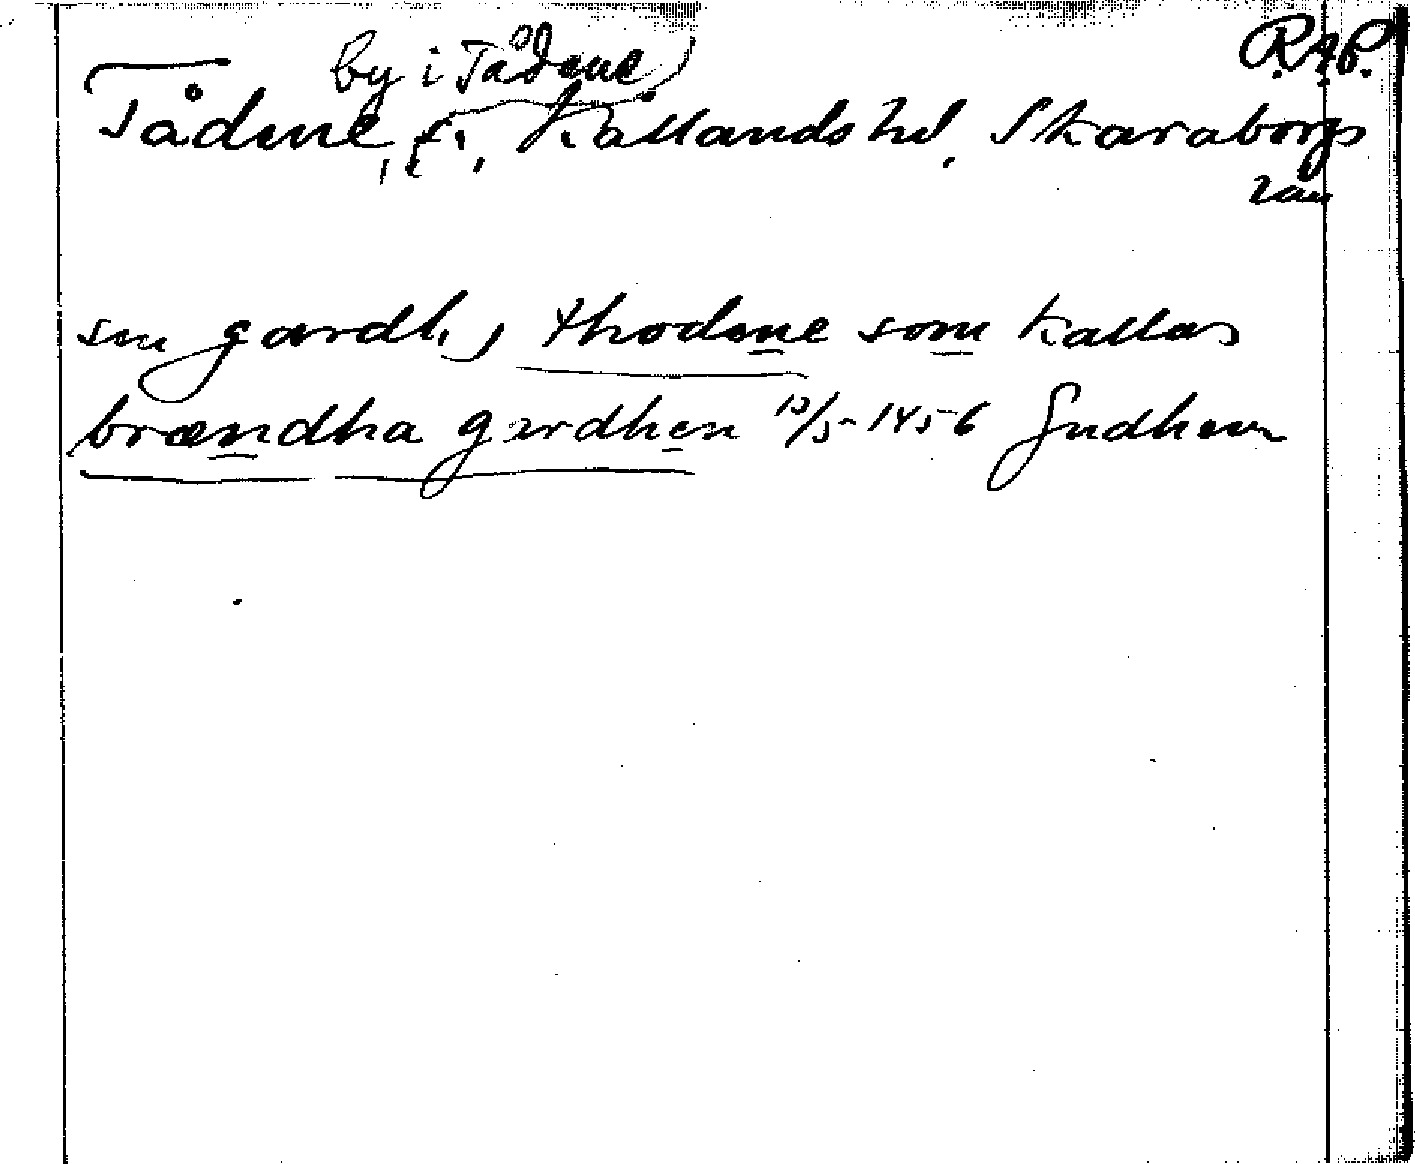 R.A.P.
by i Tådene
Tådene, s:n, Kållands hd, Skaraborgs
län
sin gardh i thodene som kallas
brændha gardhen 10/5 1456 Gudhem